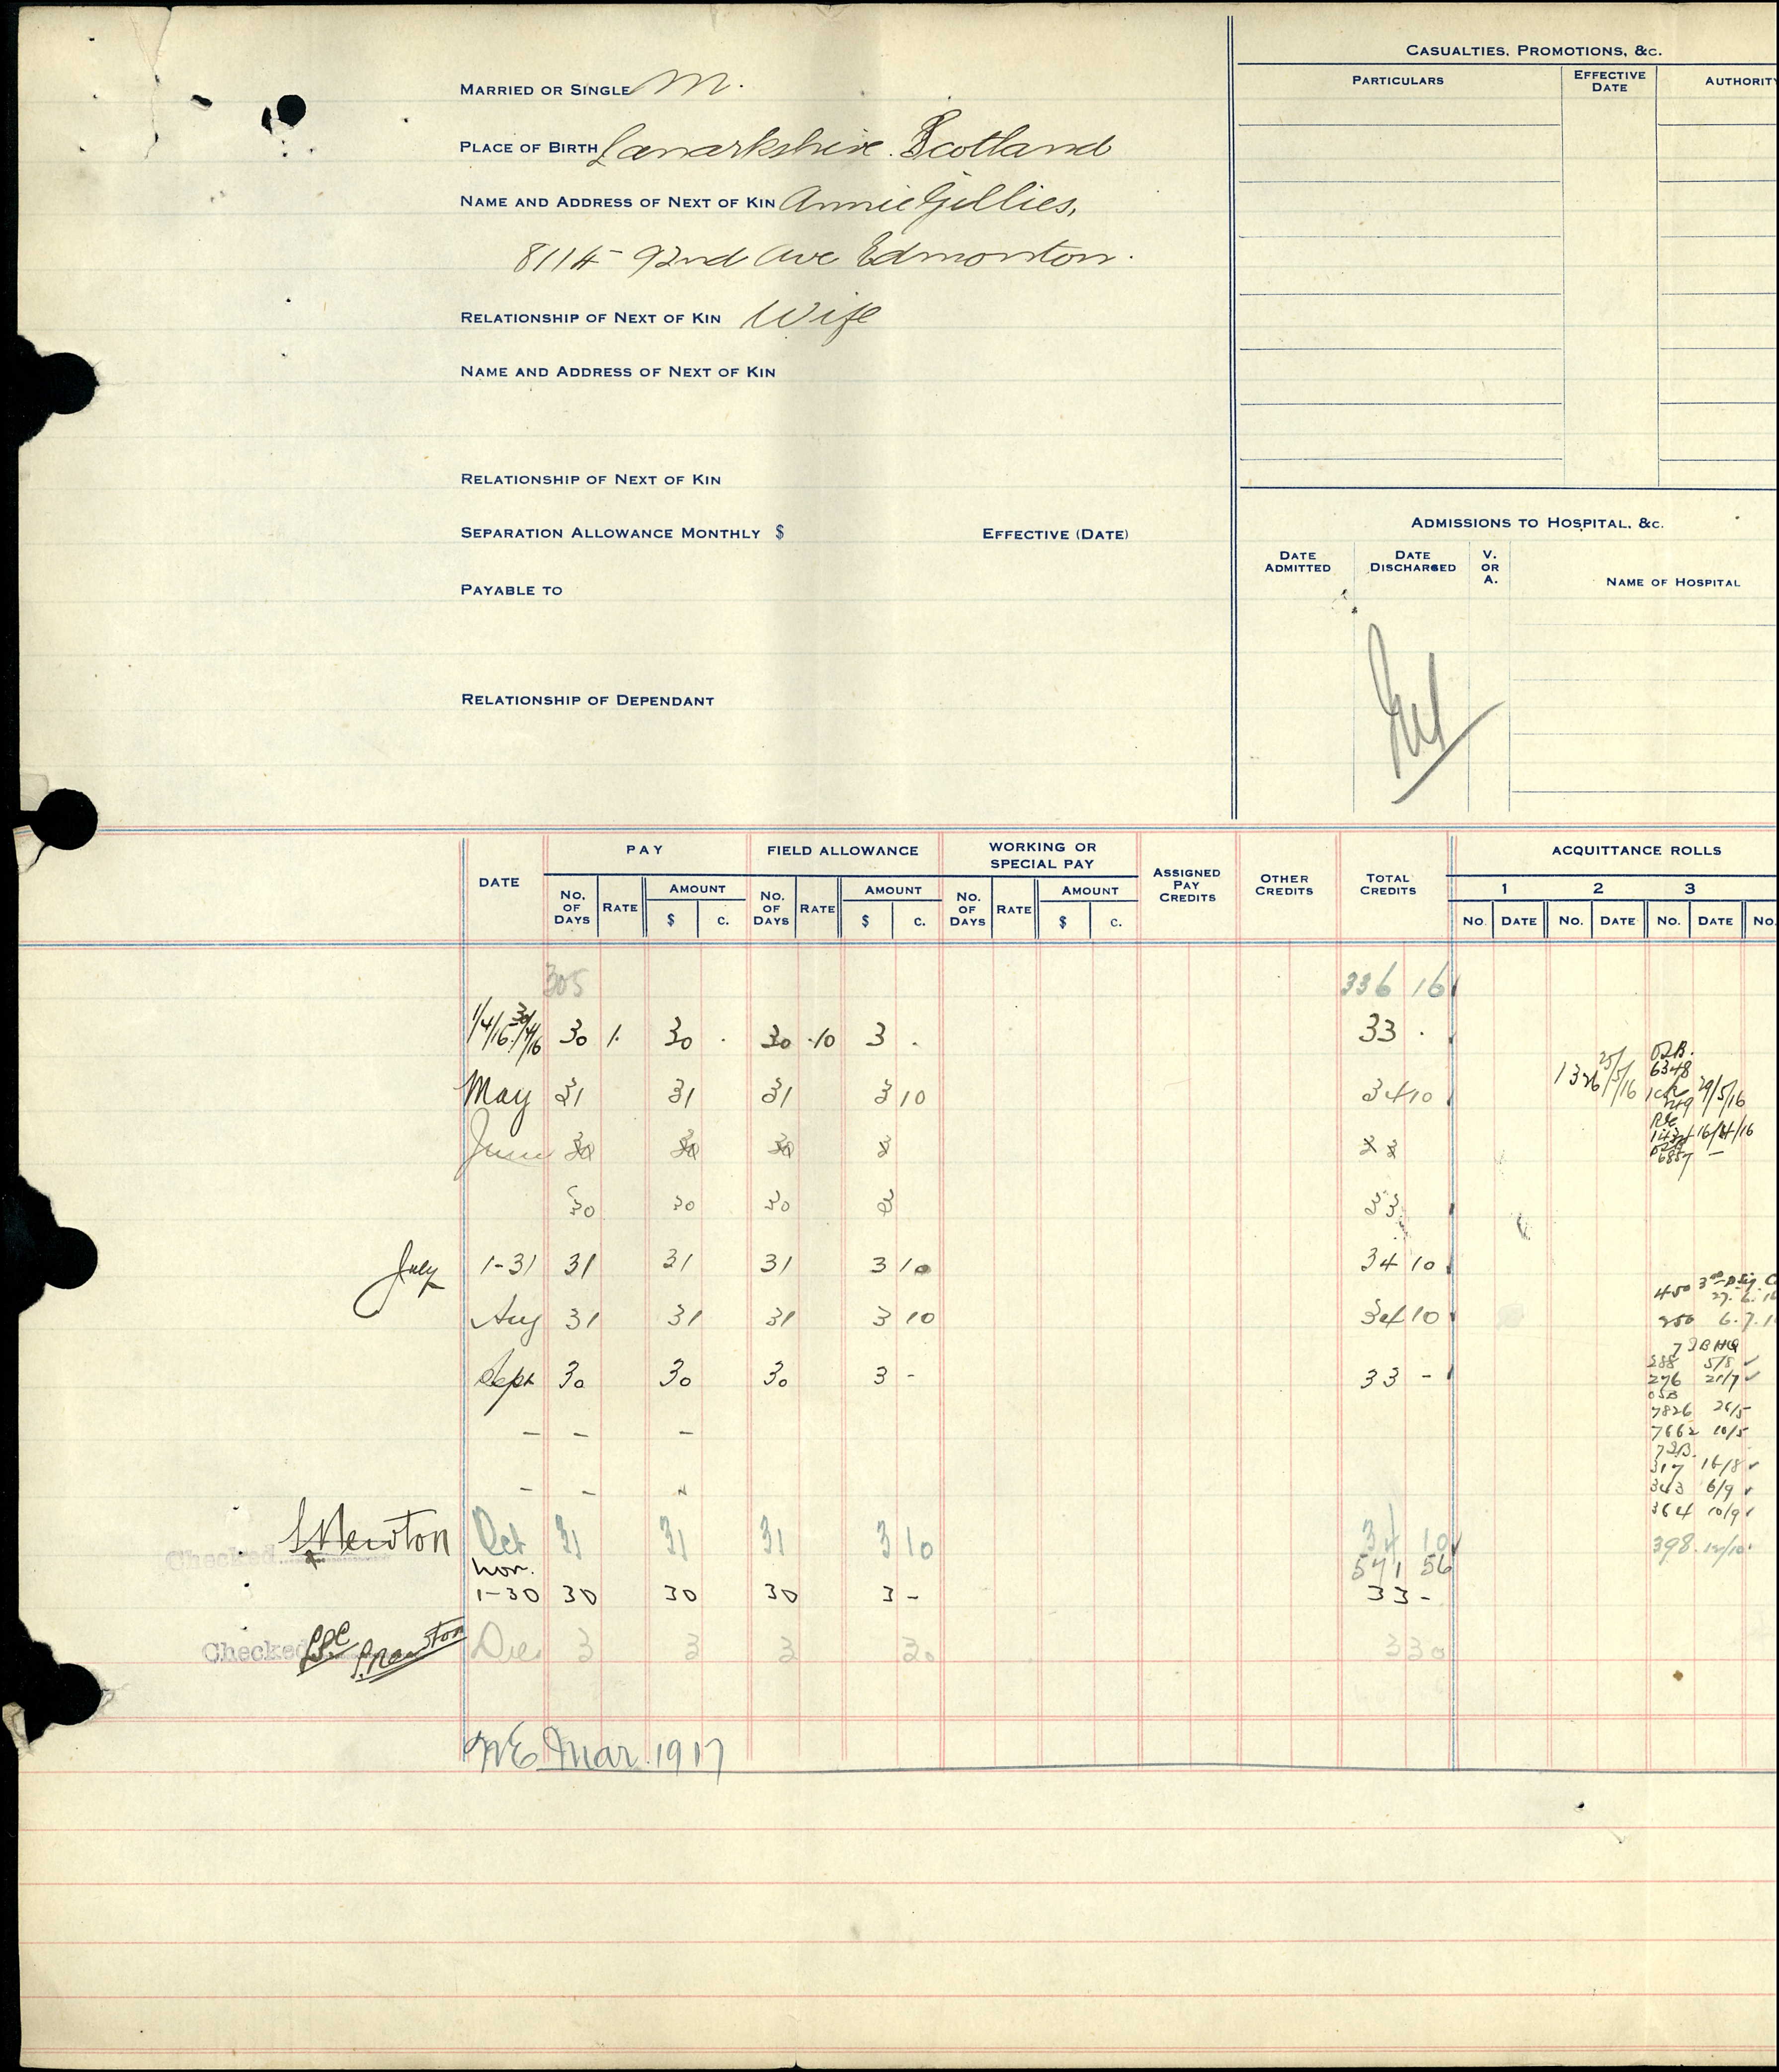 MARRIED OR SINGLE M.
PLACE OF BIRTH Lanarkshire. Scotland
NAME AND ADDRESS OF NEXT OF KIN Annie Gillies,
8114 - 92nd Ave Edmonton.
RELATIONSHIP OF NEXT OF KIN Wife
NAME AND ADDRESS OF NEXT OF KIN
RELATIONSHIP OF NEXT OF KIN
SEPARATION ALLOWANCE MONTHLY $ EFFECTIVE (DATE)
PAYABLE TO
RELATIONSHIP OF DEPENDANT
CASUALTIES, PROMOTIONS, &c.
PARTICULARS EFFECTIVE DATE AUTHORITY
ADMISSIONS TO HOSPITAL, &c.
DATE ADMITTED DATE DISCHARGED V. OR A. NAME OF HOSPITAL
PAY FIELD ALLOWANCE WORKING OR SPECIAL PAY ASSIGNED PAY CREDITS OTHER CREDITS TOTAL CREDITS ACQUITTANCE ROLLS
1 2 3
DATE NO. OF DAYS RATE AMOUNT $ c. NO. OF DAYS RATE AMOUNT $ c. NO. OF DAYS RATE AMOUNT $ c. NO. DATE NO. DATE NO. DATE NO.
305 336 16
1/4/16 30/4/16 30 1. 30 . 30 .10 3 . 33 .
May 31 31 31 3 10 34 10 1326 25/5/16 6348 29/5/16
June 30 30 30 3 33 16/4/16
6857 -
30 30 30 3 33
July 1-31 31 31 31 3 10 34 10
450 27.6.16
Aug 31 31 31 3 10 34 10 250 6.7.1
7 3B HQ
Sept 30 30 30 3 - 33 - 288 5/8
276 21/7
7826 26/5
- - - 7662 10/5
73B.
317 16/8
- - 343 6/9
364 10/9
Checked Newton Oct 31 31 31 3 10 34 10 398. 12/10
571 56
Nov. 1-30 30 30 30 3 - 33 -
Checked Dec 3 3 3 30 3 30
NE Mar. 1917